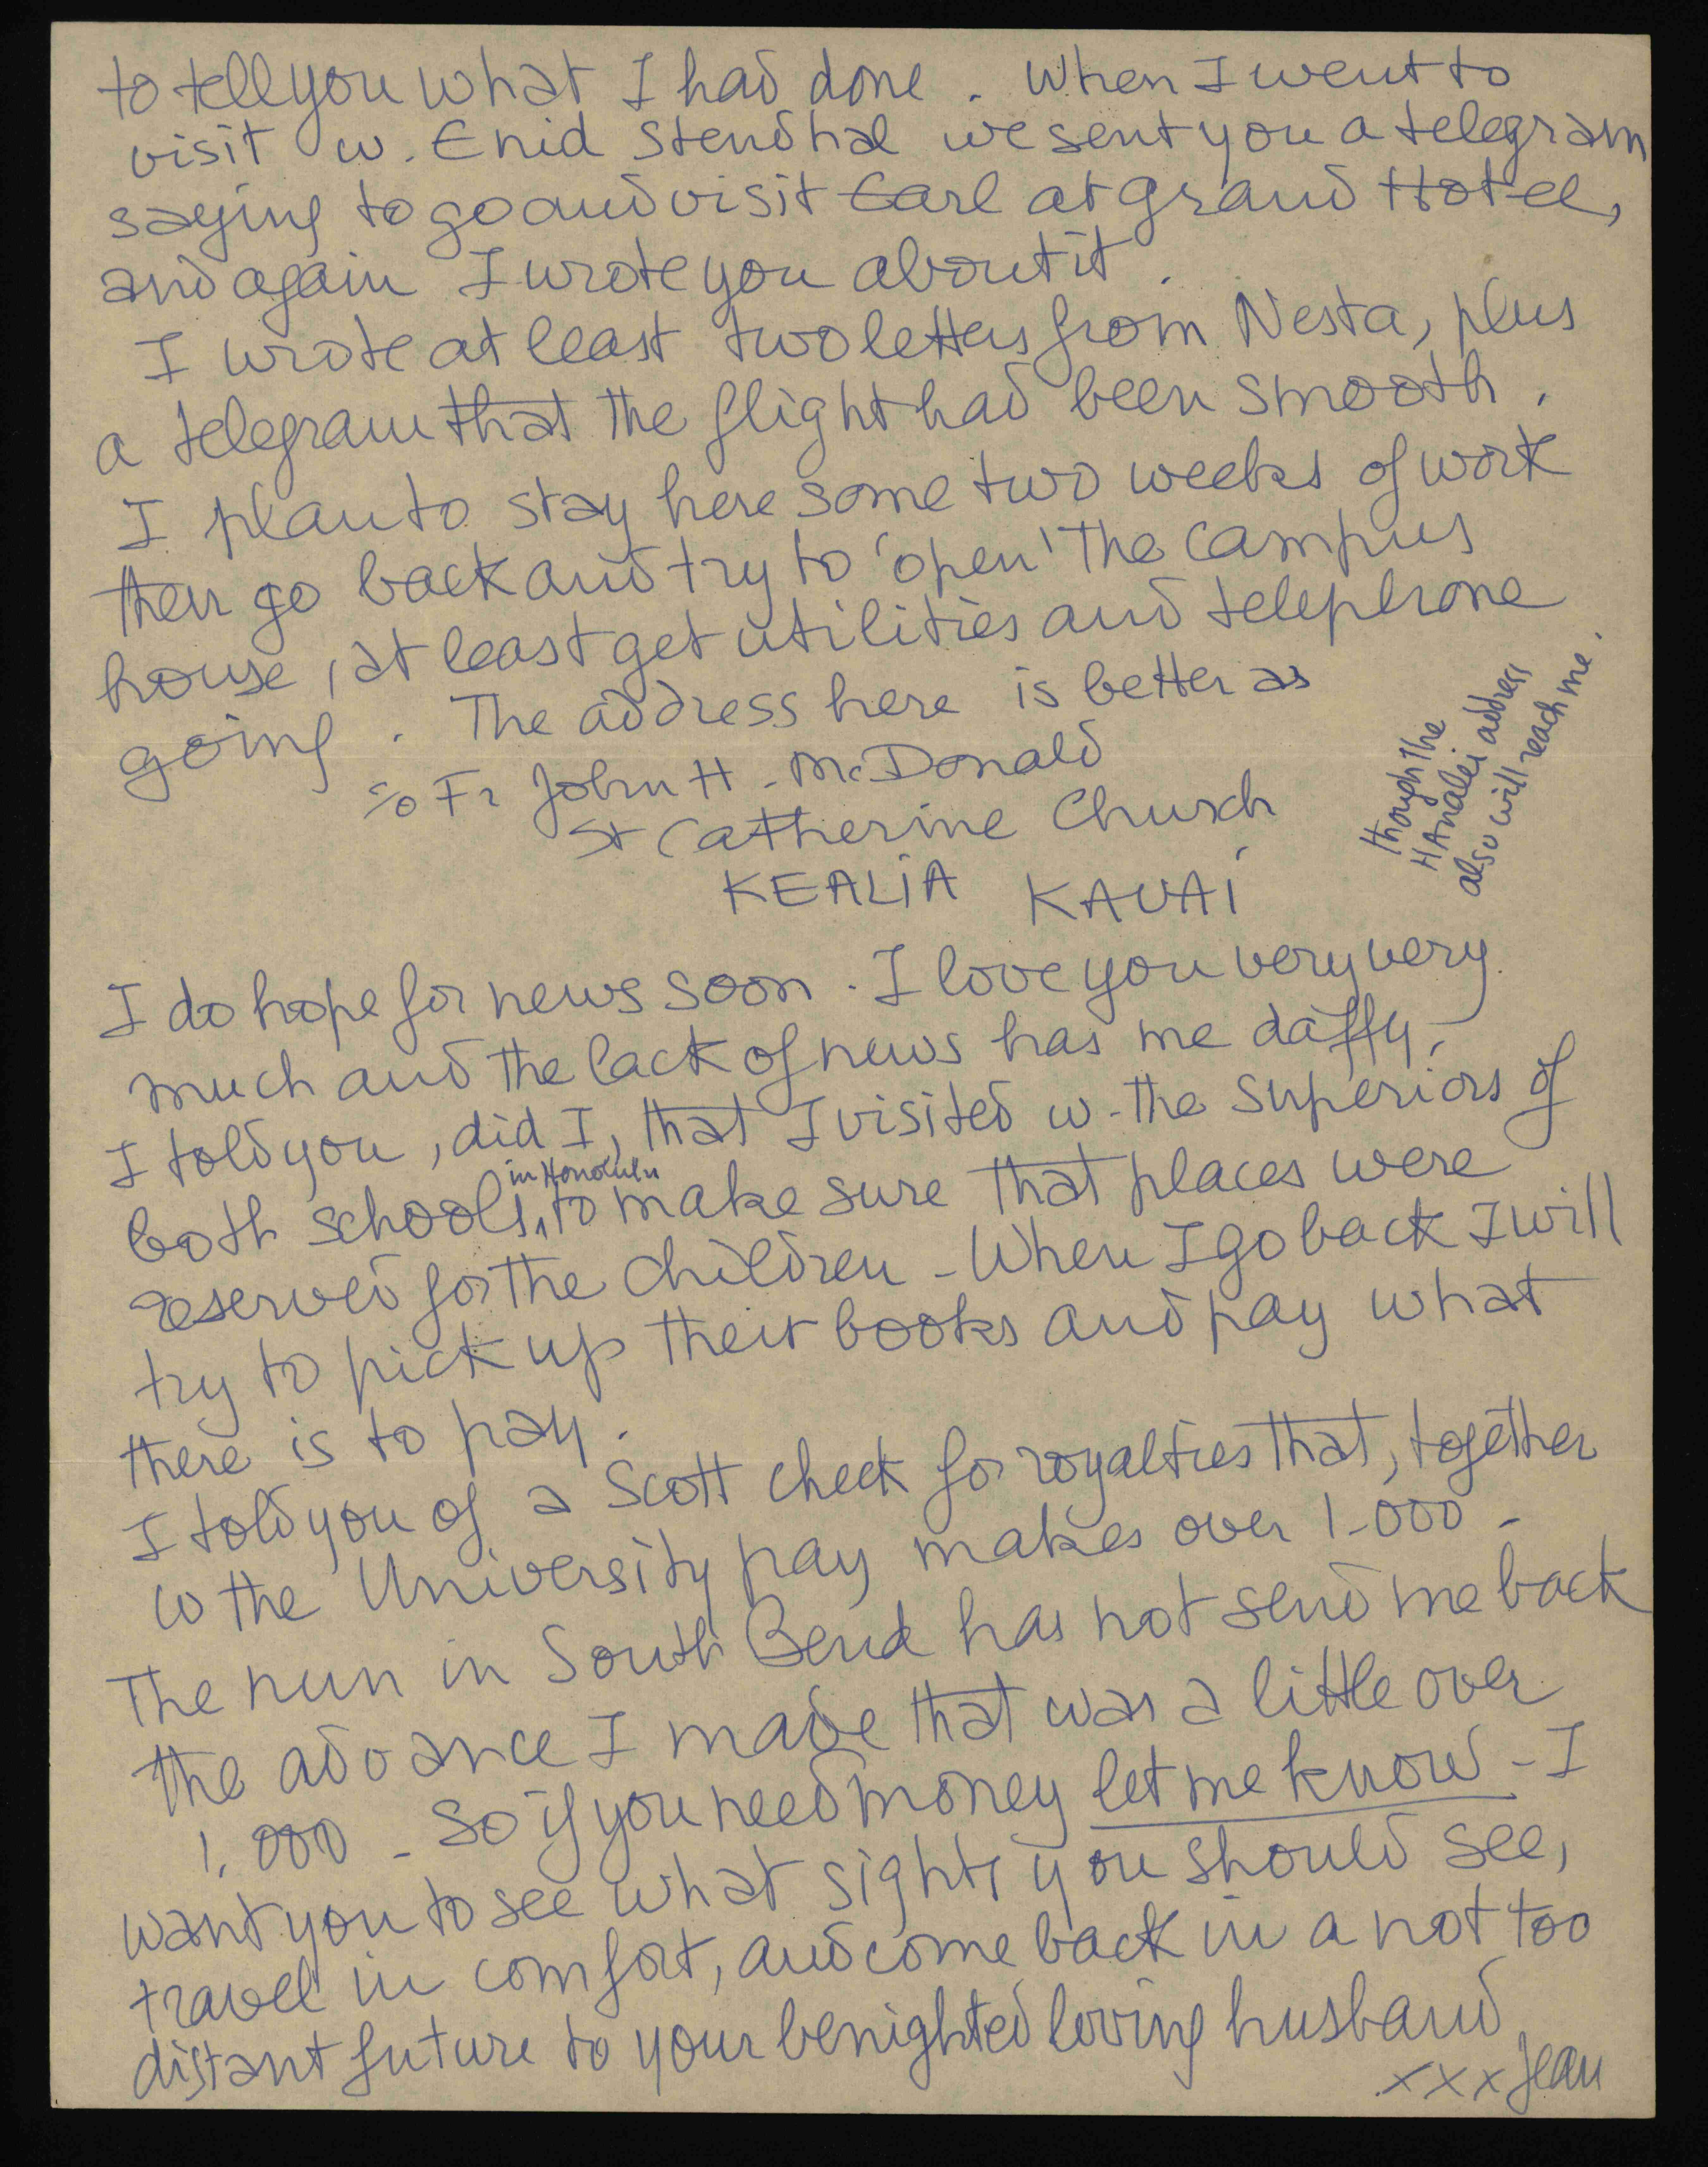 to tell you what I had done. When I went to
visit w. Enid Stendhal we sent you a telegram
saying to go and visit Earl at Grand Hotel,
and again I wrote you about it.
I wrote at least two letters from Nesta, plus
a telegram that the flight had been smooth.
I plan to stay here some two weeks of work
then go back and try to 'open' the campus
house, at least get utilities and telephone
going. The address here is better as
c/o Fr John H. McDonald
St Catherine Church
KEALIA KAUAI
though the
HAnalei address
also will reach me.
I do hope for news soon. I love you very very
much and the lack of news has me daffy.
I told you, did I, that I visited w. the superiors of
both schools, in Honolulu to make sure that places were
reserved for the children - When I go back I will
try to pick up their books and pay what
there is to pay.
I told you of a Scott check for royalties that, together
w the University pay makes over 1.000 -
The nun in South Bend has not send me back
the advance I made that was a little over
1.000 - So if you need money let me know - I
want you to see what sights you should see,
travel in comfort, and come back in a not too
distant future to your benighted loving husband
xxx Jean